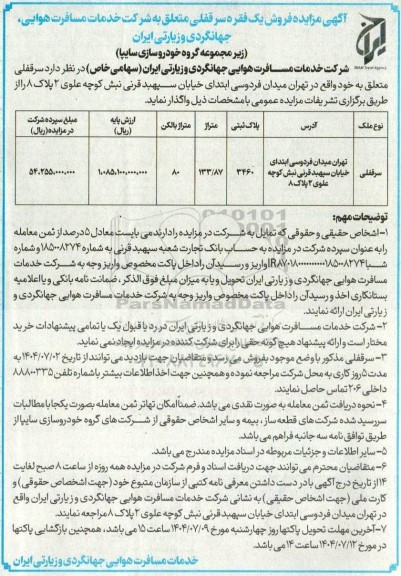 آگهی مزایده فروش یک فقره سرقفلی متعلق به شرکت خدمات مسافرت هوایی،
جهانگردی و زیارتی ایران
(زیر مجموعه گروه خودروسازی سایپا)
شرکت خدمات مسافرت هوایی جهانگردی و زیارتی ایران (سهامی خاص) در نظر دارد سرقفلی
متعلق به خود واقع در تهران میدان فردوسی ابتدای خیابان سپهبد قرنی نبش کوچه علوی ۲ پلاک ۸ را از
طریق برگزاری تشریفات مزایده عمومی با مشخصات ذیل واگذار نماید.
نوع ملک آدرس پلاک ثبتی متراژ متراژ بالکن ارزش پایه (ریال) مبلغ سپرده شرکت در مزایده (ریال)
سرقفلی تهران میدان فردوسی ابتدای خیابان سپهبد قرنی نبش کوچه علوی ۲ پلاک ۸ ۳۴۶۰ ۱۳۳/۸۷ ۸۰ ۱.۰۸۵.۱۰۰.۰۰۰.۰۰۰ ۵۴.۲۵۵.۰۰۰.۰۰۰
توضیحات مهم:
۱- اشخاص حقیقی و حقوقی که تمایل به شرکت در مزایده را دارند می بایست معادل ۵ درصد از ثمن معامله
را به عنوان سپرده شرکت در مزایده به حساب بانک تجارت شعبه سپهبد قرنی به شماره ۱۸۵۰۰۸۲۷۴ و شماره
شبا واریز و رسید آن را داخل پاکت مخصوص واریز وجه به شرکت خدمات
مسافرت هوایی جهانگردی و زیارتی ایران تحویل و یا به میزان مبلغ فوق الذکر، ضمانت نامه بانکی و یا اعلامیه
بستانکاری اخذ و رسید آن را داخل پاکت مخصوص واریز وجه به شرکت خدمات مسافرت هوایی جهانگردی و
زیارتی ایران ارائه نمایند.
۲- شرکت خدمات مسافرت هوایی جهانگردی و زیارتی ایران در رد یا قبول یک یا تمامی پیشنهادات خرید
مختار است و ارائه پیشنهاد هیچ گونه حقی را برای شرکت کننده در مزایده ایجاد نمی نماید.
۳- سرقفلی مذکور با وضع موجود بفروش می رسد و متقاضیان جهت بازدید می توانند از تاریخ ۱۴۰۴/۰۷/۰۲ به
مدت ۵ روز کاری به محل شرکت مراجعه نموده و همچنین جهت اخذ اطلاعات بیشتر با شماره تلفن ۸۸۸۰۳۳۵
داخلی ۲۰۶ تماس حاصل نمایند.
۴- نحوه دریافت ثمن معامله به صورت نقدی می باشد. ضمناً امکان تهاتر ثمن معامله بصورت یکجا با مطالبات
سررسید شده شرکت های قطعه ساز، بیمه و سایر اشخاص حقوقی از شرکت های گروه خودروسازی سایپا از
طریق توافق نامه سه جانبه فراهم می باشد.
۵- سایر اطلاعات و جزئیات مربوطه در اسناد مزایده مندرج می باشد.
۶- متقاضیان محترم می توانند جهت دریافت اسناد و فرم شرکت در مزایده همه روزه از ساعت ۸ صبح لغایت
۱۴ از تاریخ درج آگهی با در دست داشتن معرفی نامه کتبی از سازمان متبوع خود (جهت اشخاص حقوقی) و
کارت ملی (جهت اشخاص حقیقی) به نشانی شرکت خدمات مسافرت هوایی جهانگردی و زیارتی ایران واقع
در تهران میدان فردوسی ابتدای خیابان سپهبد قرنی نبش کوچه علوی ۲ پلاک ۸ مراجعه نمایند.
۷- آخرین مهلت تحویل پاکتها روز چهارشنبه مورخ ۱۴۰۴/۰۷/۰۹ ساعت ۱۵ می باشد، همچنین بازگشایی پاکتها
در مورخ ۱۴۰۴/۰۷/۱۲ ساعت ۱۴ می باشد.
خدمات مسافرت هوایی جهانگردی و زیارتی ایران